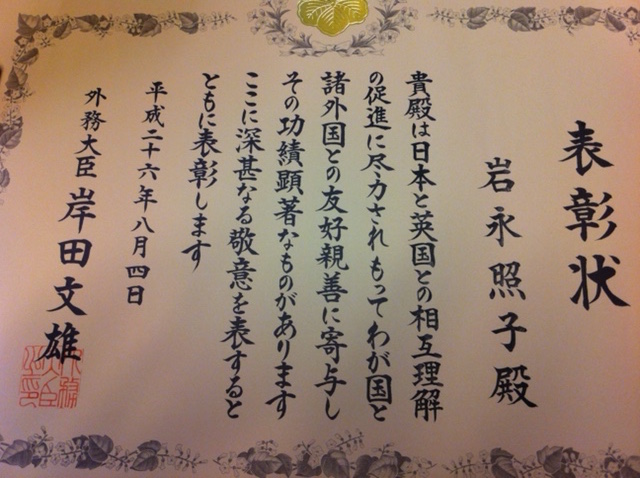 表彰状
岩永照子殿
貴殿は日本と英国との相互理解
の促進に尽力されもってわが国と
諸外国との友好親善に寄与し
その功績顕著なものがあります
ここに深甚なる敬意を表すると
ともに表彰します
平成二十六年八月四日
外務大臣 岸田文雄